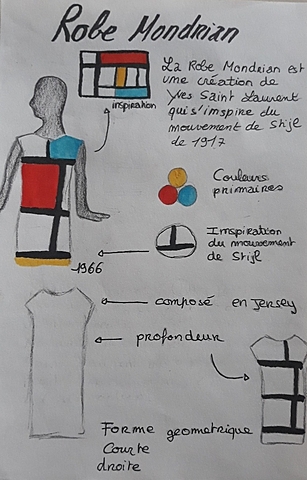 Robe Mondrian
inspiration
La Robe Mondrian est
une création de
Yves Saint Laurent
qui s'inspire du
mouvement de Stijl
de 1917
Couleurs
primaires
Inspiration
du mouvement
de Stijl
1966
composé en Jersey
profondeur
Forme geometrique
Courte
droite